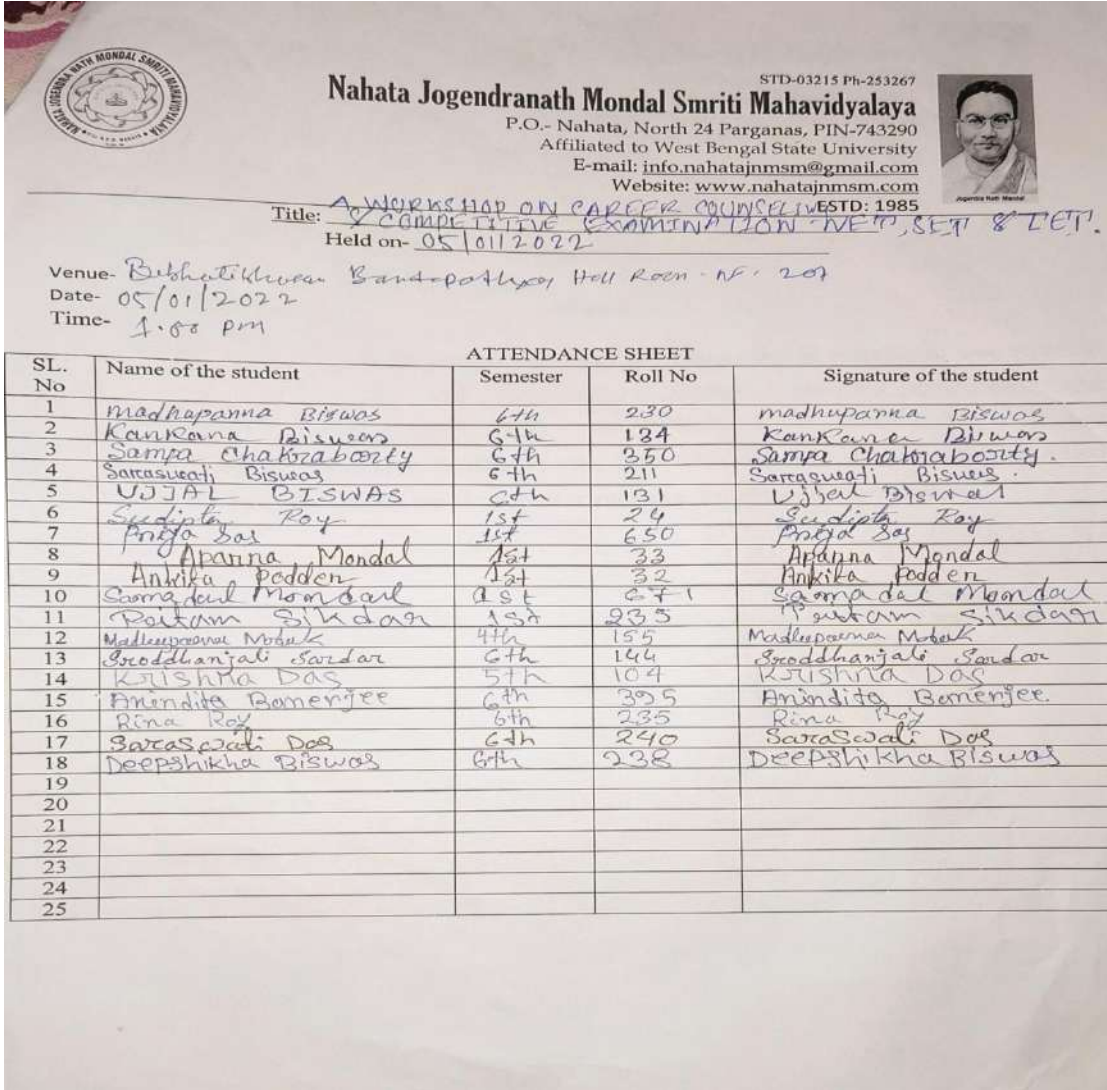 NAHATA JOGENDRA NATH MONDAL SMRITI MAHAVIDYALAYA
STD-03215 Ph-253267
Nahata Jogendranath Mondal Smriti Mahavidyalaya
P.O.- Nahata, North 24 Parganas, PIN-743290
Affiliated to West Bengal State University
E-mail: info.nahatajnmsm@gmail.com
Website: www.nahatajnmsm.com
ESTD: 1985
Jogendra Nath Mandal
Title: A WORKSHOP ON CAREER
& COMPETITIVE EXAMINATION NET, SET &
Held on- 05/01/2022
Venue- Hall Room
Date- 05/01/2022
Time- pm
ATTENDANCE SHEET
SL. No Name of the student Semester Roll No Signature of the student
1 madhaparna Biswas 6th 230 madhuparna Biswas
2 Kankana Biswas 6th 134 Kankana Biswas
3 Sampa Chakraborty 6th 350 Sampa Chakraborty.
4 Saraswati Biswas 6th 211 Saraswati Biswas.
5 UJJAL BISWAS 6th 131 Ujjal Biswas
6 Sudipta Roy 1st 24 Sudipta Roy
7 1st 650
8 Aparna Mondal 1st 33 Aparna Mondal
9 Ankita Podder 1st 32 Ankita Podder
10 Mondal 1st 671 Mondal
11 Sikdar 1st 235 Sikdar
12 4th 155
13 Sroddhanjali Sardar 6th 144 Sroddhanjali Sardar
14 Krishna Das 5th 104 Krishna Das
15 Anindita Banerjee 6th 395 Anindita Banerjee
16 Rina Roy 6th 235 Rina Roy
17 Saraswati Das 6th 240 Saraswati Das
18 Deepshikha Biswas 6th 238 Deepshikha Biswas
19
20
21
22
23
24
25